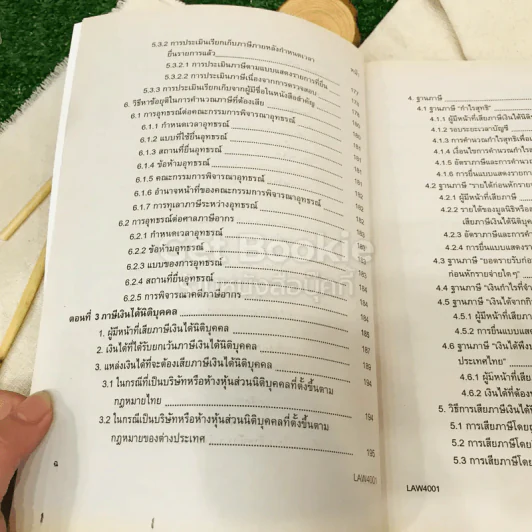 5.3.2 การประเมินเรียกเก็บภาษีภายหลังกำหนดเวลา
ยื่นรายการแล้ว
หน้า
5.3.2.1 การประเมินภาษีตามแบบแสดงรายการที่ยื่น 177
5.3.2.2 การประเมินภาษีเนื่องจากการตรวจสอบ
5.3.3 การประเมินเรียกเก็บจากผู้มีชื่อในหนังสือสำคัญ
6. วิธีหาข้อยุติในการคำนวณภาษีที่ต้องเสีย
6.1 การอุทธรณ์ต่อคณะกรรมการพิจารณาอุทธรณ์
6.1.1 กำหนดเวลาอุทธรณ์
6.1.2 แบบที่ใช้ยื่นอุทธรณ์
6.1.3 สถานที่ยื่นอุทธรณ์
6.1.4 ข้อห้ามอุทธรณ์
6.1.5 คณะกรรมการพิจารณาอุทธรณ์
6.1.6 อำนาจหน้าที่ของคณะกรรมการพิจารณาอุทธรณ์
6.1.7 การทุเลาภาษีระหว่างอุทธรณ์
6.2 การอุทธรณ์ต่อศาลภาษีอากร
6.2.1 กำหนดเวลาอุทธรณ์
6.2.2 ข้อห้ามอุทธรณ์
6.2.3 แบบของการอุทธรณ์
6.2.4 สถานที่ยื่นอุทธรณ์
6.2.5 การพิจารณาคดีภาษีอากร 184
ตอนที่ 3 ภาษีเงินได้นิติบุคคล 184
1. ผู้มีหน้าที่เสียภาษีเงินได้นิติบุคคล 185
2. เงินได้ที่ได้รับยกเว้นภาษีเงินได้นิติบุคคล 187
3. แหล่งเงินได้ที่จะต้องเสียภาษีเงินได้นิติบุคคล 189
3.1 ในกรณีที่เป็นบริษัทหรือห้างหุ้นส่วนนิติบุคคลที่ตั้งขึ้นตาม 194
กฎหมายไทย
3.2 ในกรณีเป็นบริษัทหรือห้างหุ้นส่วนนิติบุคคลที่ตั้งขึ้นตาม 194
กฎหมายของต่างประเทศ 195
LAW4001
4. ฐานภาษี
4.1 ฐานภาษี "กำไรสุทธิ"
4.1.1 ผู้มีหน้าที่เสียภาษีเงินได้นิติ
4.1.2 รอบระยะเวลาบัญชี
4.1.3 การคำนวณกำไรสุทธิเพื่อ
4.1.4 เงื่อนไขการคำนวณกำไรสุ
4.1.5 อัตราภาษีและการคำนว
4.1.6 การยื่นแบบแสดงรายกา
4.2 ฐานภาษี "รายได้ก่อนหักราย
4.2.1 ผู้มีหน้าที่เสียภาษี
4.2.2 รายได้ของมูลนิธิหรือส
เสียภาษีเงินได้นิติบุค
4.2.3 อัตราภาษีและการค
4.2.4 การยื่นแบบแสดงรา
4.3 ฐานภาษี "ยอดรายรับก่อ
ก่อนหักรายจ่ายใดๆ"
4.4 ฐานภาษี "เงินกำไรที่จำ
4.5 ฐานภาษี "เงินได้จากกิ
4.5.1 ผู้มีหน้าที่เสียภาษี
4.5.2 การยื่นแบบแสด
4.6 ฐานภาษี "เงินได้พึง
ประเทศไทย"
4.6.1 ผู้มีหน้าที่เสีย
4.6.2 เงินได้ที่ต้อง
5. วิธีการเสียภาษีเงินได้
5.1 การเสียภาษีโดย
5.2 การเสียภาษีโดย
5.3 การเสียภาษีโดย
LAW4001